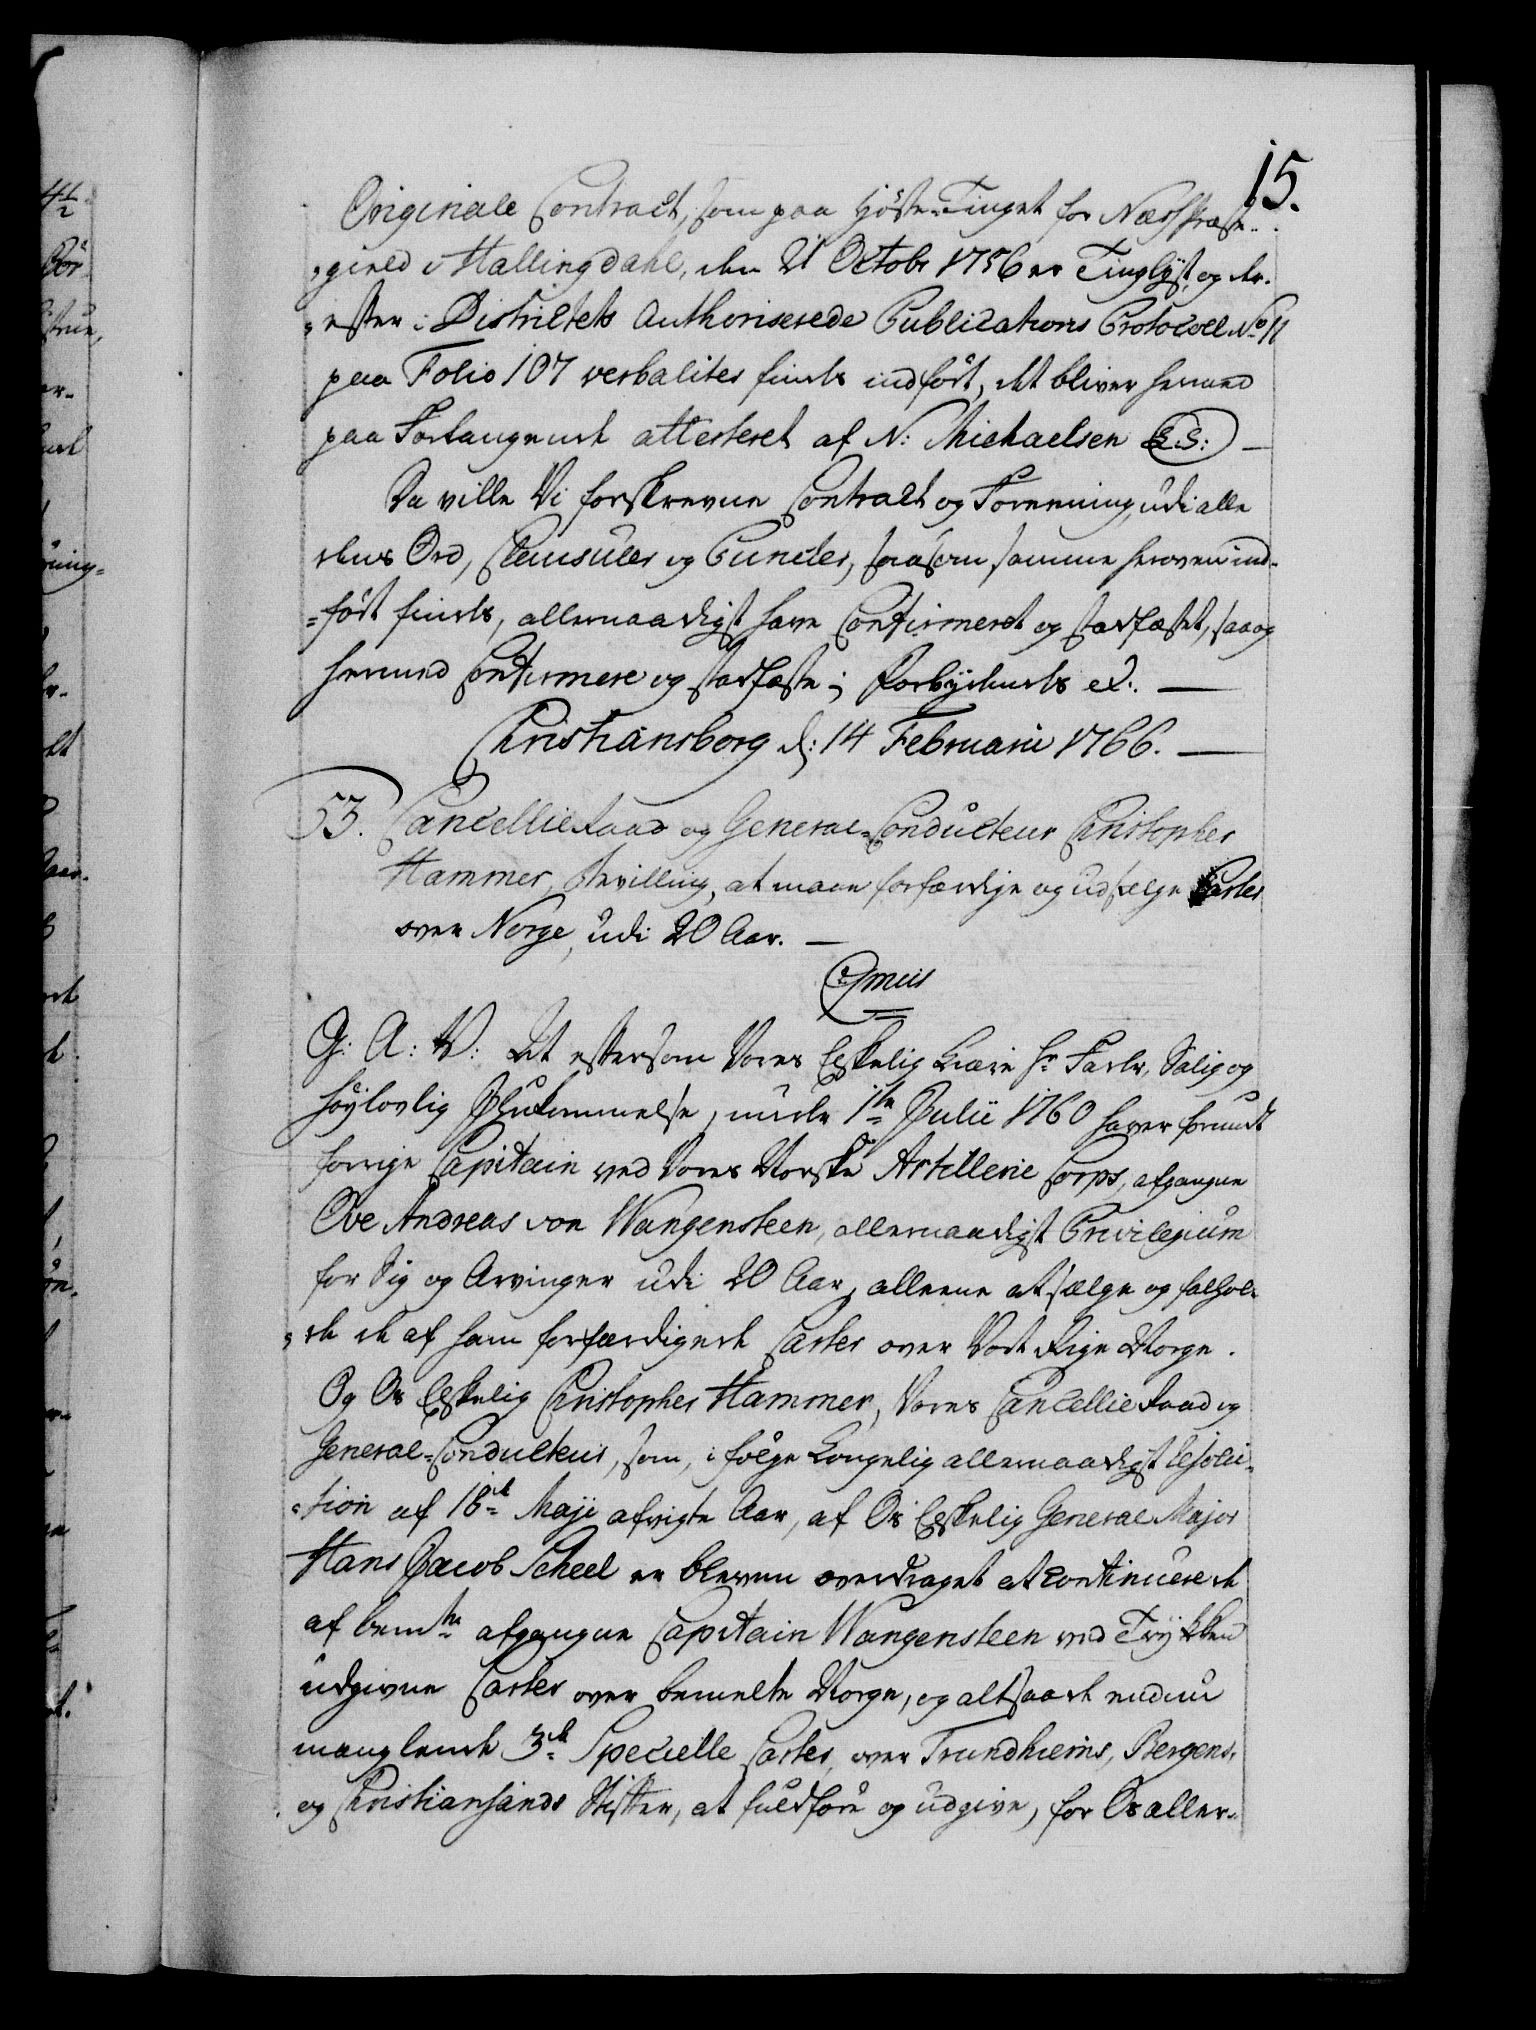 15.
Originale Contract, som paa Höste-Tinget for Næss Præste-
-gield i Hallingdahl, den 21 Octobr 1756 er Tinglyst, og der-
-efter i Districtets Authoriserede Publications Protocoll No 11
paa Folio 107 verbaliter findes indfört, det bliver hermed
paa Forlangende attesteret af N: Michaelsen (L.S:) —
Da ville Vi forskrevne Contract og Foreening, udi alle
dens Ord, Clausuler og Puncter, saasom samme heroven ind-
-fört findes, allernaadigst have Confirmeret og stadfæstet, saa og
hermed Confirmere og stadfæste; Forbydendes etc. —
Christiansborg d: 14 Februarii 1766. —
53. Cancellieraad og General-Conducteur Christopher
Hammer, Bevilling, at maae forfærdige og udsælge Carter
over Norge, udi 20 Aar. —
G: A: V: Vit eftersom Vores Elskelig Kiære Hr Fader, Salig og
Höylovlig Ihukommelse, under 1te Julii 1760 haver forundt
forrige Capitain ved Vores Norske Artillerie Corps, afgangne
Ove Andreas von Wangensteen, allernaadigst Privilegium
for Sig og Arvinger udi 20 Aar, alleene at sælge og falhol-
-de de af ham forfærdigede Carter over Vort Rige Norge.
Og Os Elskelig Christopher Hammer, Vores Cancellieraad og
General-Conducteur, som, i fölge Kongelig allernaadigst Resolu-
-tion af 16de Maji afvigte Aar, af Os Elskelig General Major
Hans Jacob Scheel er bleven overdraget at continuere de
af bemte afgangne Capitain Wangensteen ved Trykken
udgivne Carter over bemelte Norge, og altsaa de endnu
manglende 3de Specielle Carter, over Trundhiems, Bergens,
og Christiansands Stifter, at fuldföre og udgive, for Os aller-